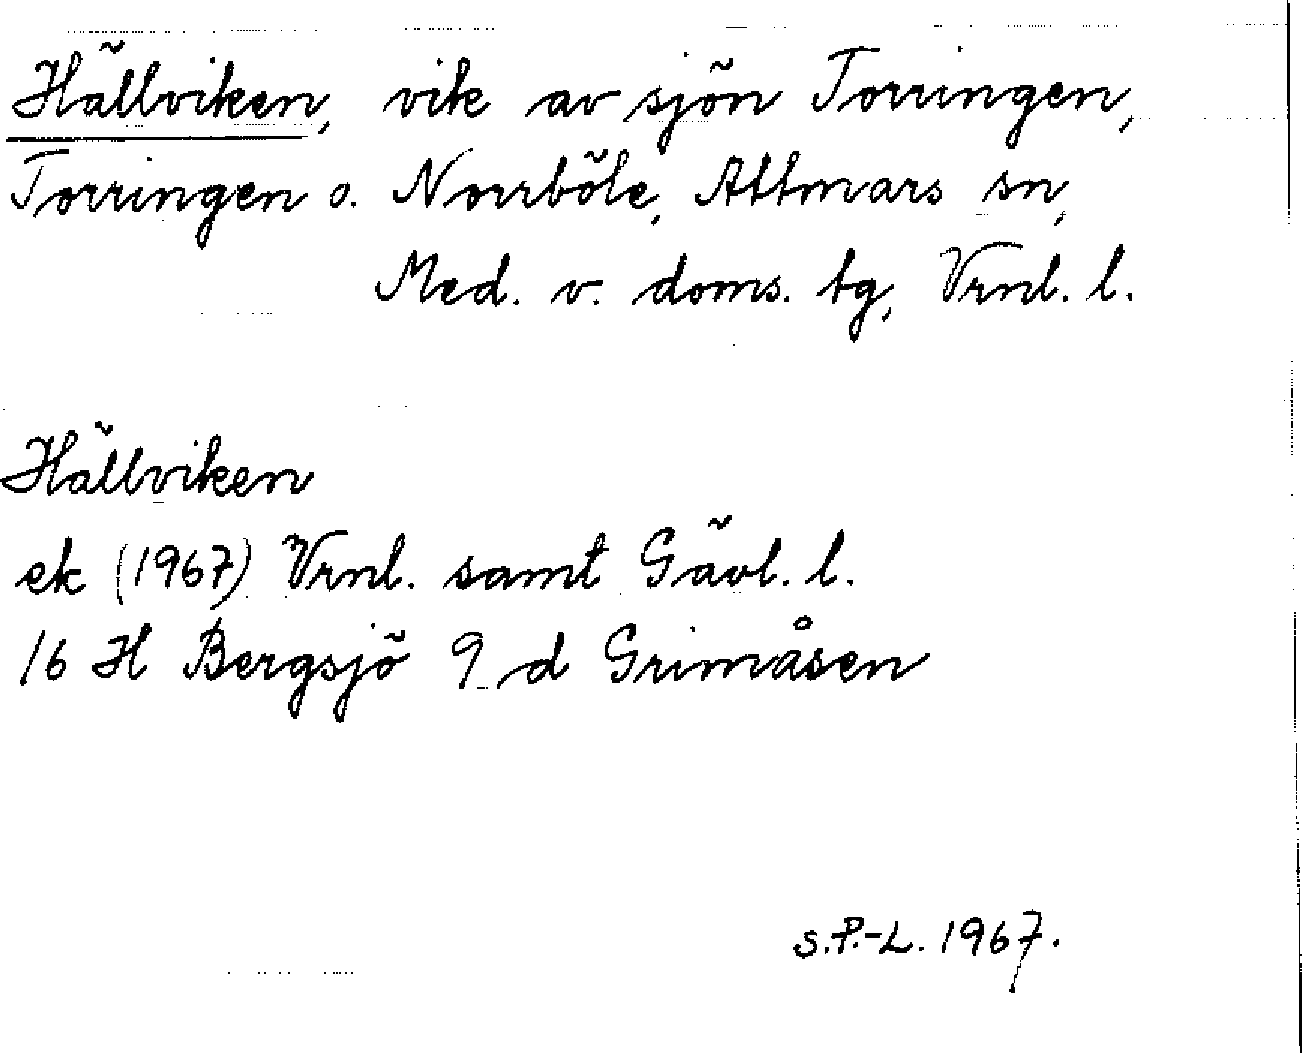 Hällviken, vik av sjön Torringen,
Torringen o. Norrböle, Attmars sn,
Med. v. doms. tg, Vrnl. l.
Hällviken
ek (1967) Vrnl. samt Gävl. l.
16 H Bergsjö 9 d Grimåsen
S.P.-L. 1967.